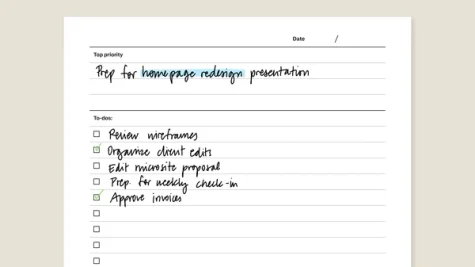 Date /
Top priority
Prep for homepage redesign presentation
To-dos:
Review wireframes
Organise client edits
Edit microsite proposal
Prep for weekly check-in
Approve invoices